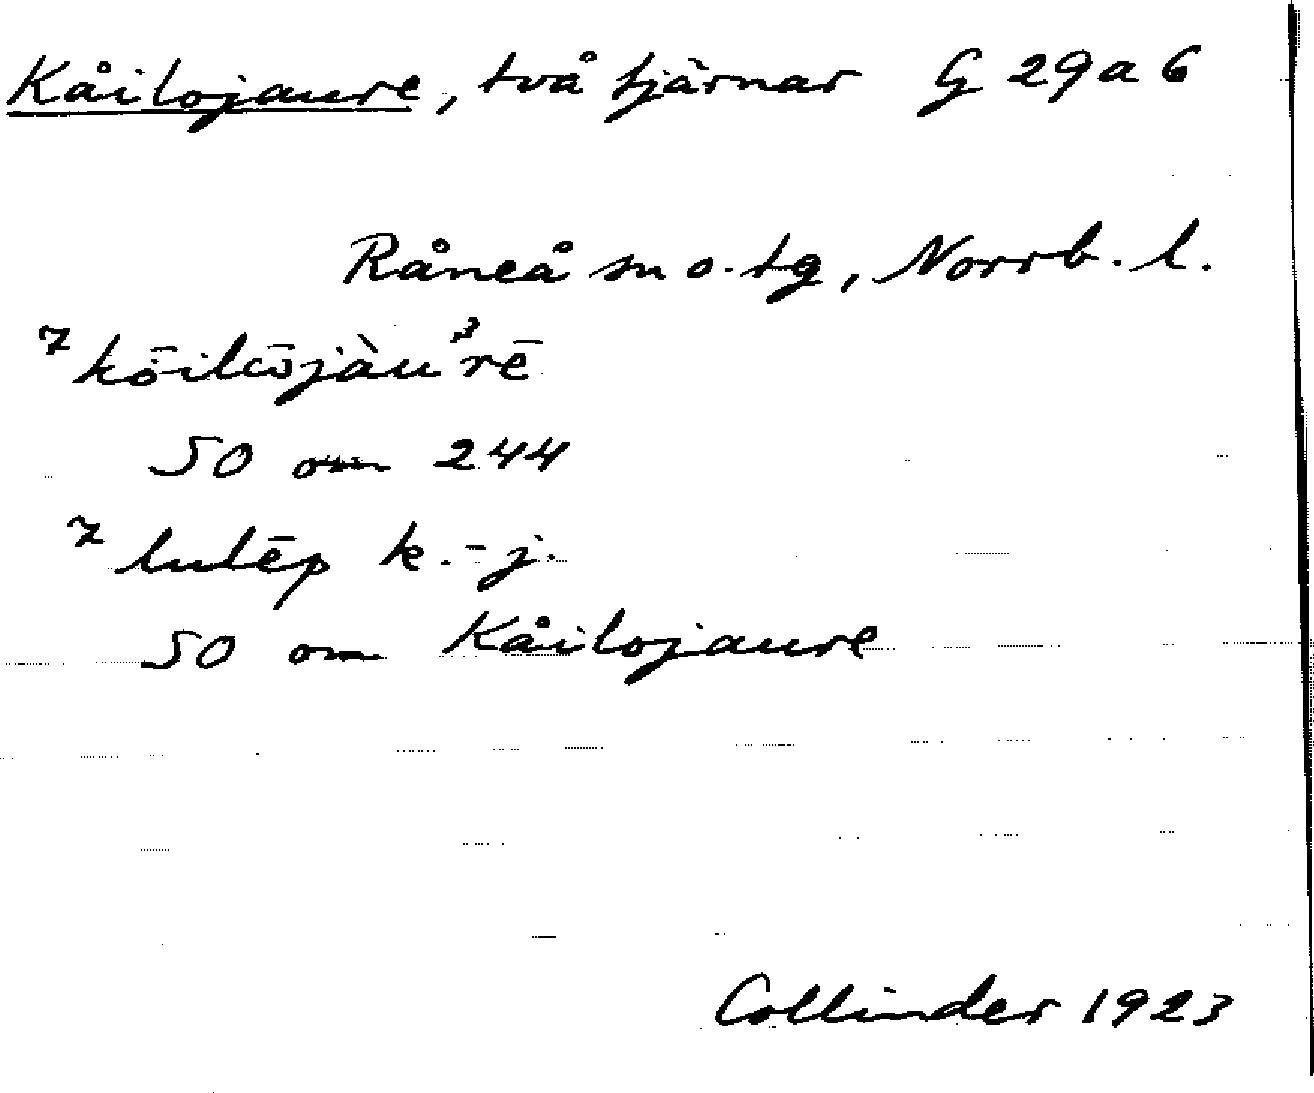 Kåilojaure, två tjärnar G 29a6
Råneå sn o. tg, Norrb. l.
7 kōilōjàuᵊrē
50 om 244
7 lulēp k.-j.
50 om Kåilojaure
Collinder 1923